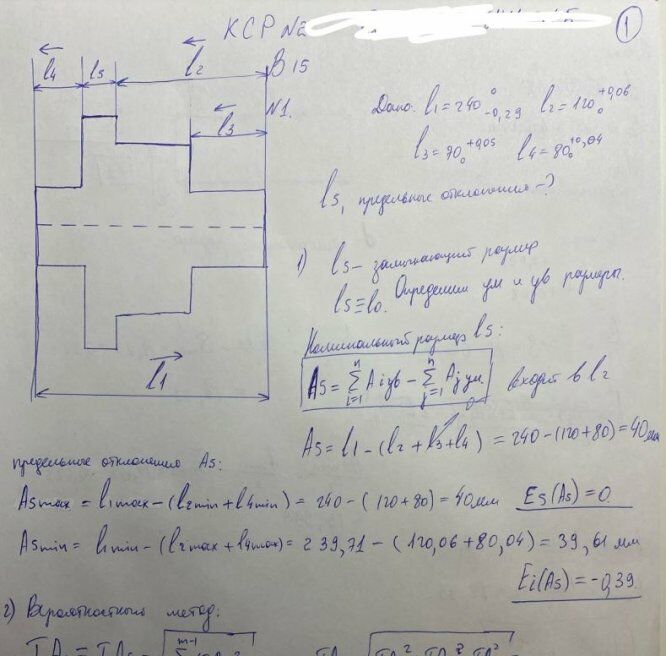 КСР №2
1
l4 l5 l2 В 15
l3 №1.
Дано: l1 = 240 0 -0,29 l2 = 120 0 +0,06
l3 = 90 0 +0,05 l4 = 80 0 +0,04
l5, предельные отклонения - ?
1) l5 - замыкающий размер
l5 ≡ l0. Определим ум и ув размеры.
Номинальный размер l5:
A5 = Σ i=1 n Ai ув - Σ j=1 n Aj ум. входит в l2
0
A5 = l1 - (l2 + l3 + l4) = 240 - (120 + 80) = 40 мм
l1
предельные отклонения A5:
A5max = l1max - (l2min + l4min) = 240 - (120 + 80) = 40 мм Es(A5) = 0
A5min = l1min - (l2max + l4max) = 239,71 - (120,06 + 80,04) = 39,61 мм
Ei(A5) = -0,39
2) Вероятностный метод: